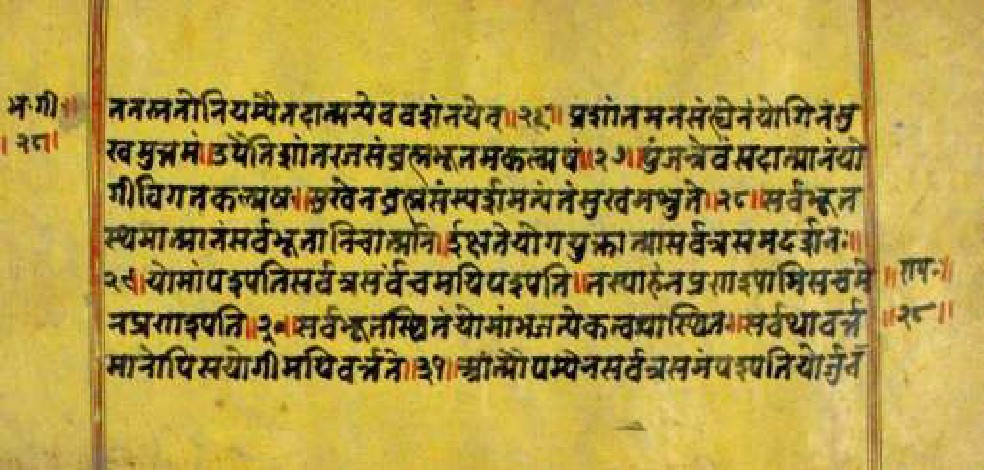 भ॰गी॰
॥२८॥
ततस्ततोनियम्यैतदात्मन्येववशंनयेत्॥२६॥प्रशांतमनसंह्येनंयोगिनंसु
खमुत्तमं॥उपैतिशांतरजसंब्रह्मभूतमकल्मषं॥२७॥युंजन्नेवंसदात्मानंयो
गीविगतकल्मषः॥सुखेनब्रह्मसंस्पर्शमत्यंतंसुखमश्नुते॥२८॥सर्वभूत
स्थमात्मानंसर्वभूतानिचात्मनि॥ईक्षतेयोगयुक्तात्मासर्वत्रसमदर्शनः॥
२९॥योमांपश्यतिसर्वत्रसर्वंचमयिपश्यति॥तस्याहंनप्रणश्यामिसचमे
नप्रणश्यति॥३०॥सर्वभूतस्थितंयोमांभजत्येकत्वमास्थितः॥सर्वथावर्त्त
मानोपिसयोगीमयिवर्त्तते॥३१॥आत्मौपम्येनसर्वत्रसमंपश्यतियोर्जुन
॥राम॰॥
॥२८॥